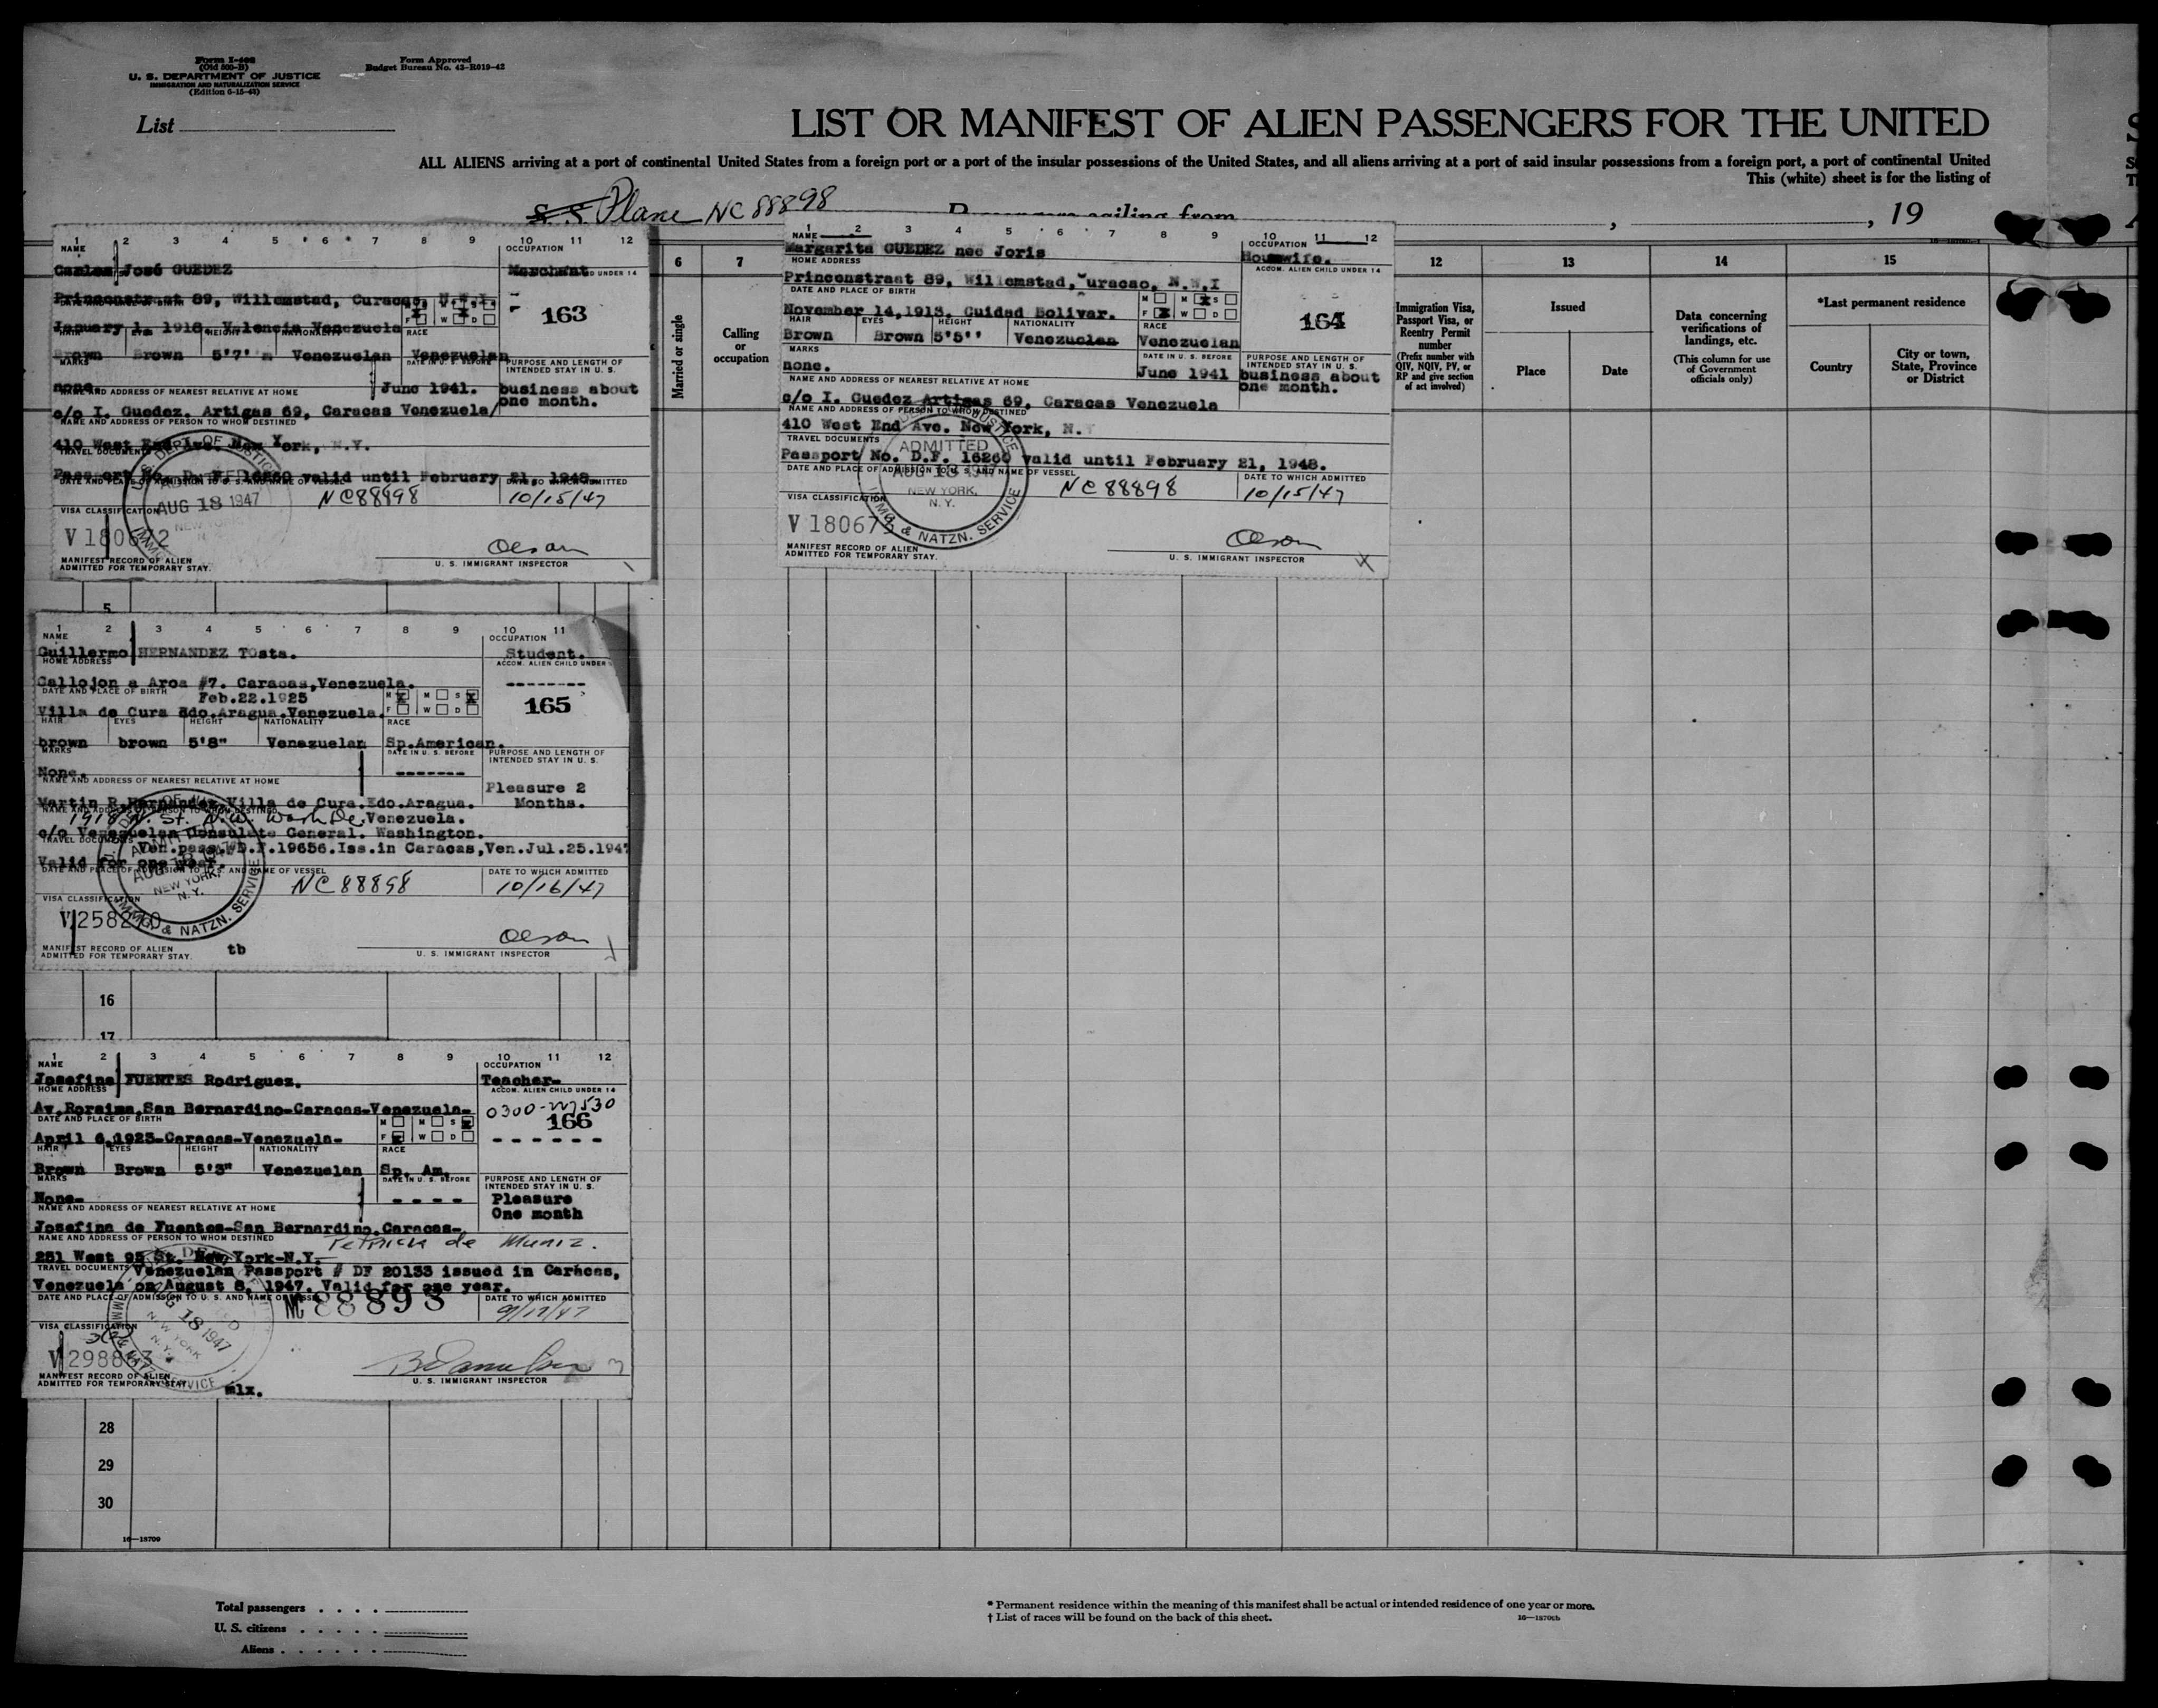 Form I-466
(Old 500-B)
U. S. DEPARTMENT OF JUSTICE
IMMIGRATION AND NATURALIZATION SERVICE
(Edition 6-15-43)
Form Approved
Budget Bureau No. 43-R019-42
List
LIST OR MANIFEST OF ALIEN PASSENGERS FOR THE UNITED
ALL ALIENS arriving at a port of continental United States from a foreign port or a port of the insular possessions of the United States, and all aliens arriving at a port of said insular possessions from a foreign port, a port of continental United
This (white) sheet is for the listing of
S. S. Plane NC 88898
Passengers sailing from , , 19
1 2 3 4 5 6 7 8 9 10 11 12
NAME OCCUPATION
Carlos José GUEDEZ Merchant
UNDER 14
Princenstraat 89, Willemstad, Curacao, N.W.I.
163
January 1, 1918, Valencia Venezuela
HAIR EYES HEIGHT NATIONALITY RACE
Brown Brown 5'7' Venezuelan Venezuelan
MARKS DATE IN U. S. BEFORE PURPOSE AND LENGTH OF INTENDED STAY IN U. S.
none. June 1941. business about one month.
NAME AND ADDRESS OF NEAREST RELATIVE AT HOME
c/o I. Guedez, Artigas 69, Caracas Venezuela/
NAME AND ADDRESS OF PERSON TO WHOM DESTINED
410 West End Ave. New York, N.Y.
TRAVEL DOCUMENTS
Passport No. D. F. 16260 valid until February 21, 1948.
DATE AND PLACE OF ADMISSION TO U. S. AND NAME OF VESSEL DATE TO WHICH ADMITTED
AUG 18 1947
NC88898 10/15/47
VISA CLASSIFICATION
V 180672
Olson
MANIFEST RECORD OF ALIEN
ADMITTED FOR TEMPORARY STAY.
U. S. IMMIGRANT INSPECTOR
1 2 3 4 5 6 7 8 9 10 11 12
NAME OCCUPATION
Margarita GUEDEZ nee Joris Housewife.
HOME ADDRESS ACCOM. ALIEN CHILD UNDER 14
Princenstraat 89, Willemstad, Curacao, N.W.I
DATE AND PLACE OF BIRTH M M S
November 14,1913, Cuidad Bolivar. F W D
164
HAIR EYES HEIGHT NATIONALITY RACE
Brown Brown 5'5'' Venezuelan Venezuelan
MARKS DATE IN U. S. BEFORE PURPOSE AND LENGTH OF INTENDED STAY IN U. S.
none. June 1941 business about one month.
NAME AND ADDRESS OF NEAREST RELATIVE AT HOME
c/o I. Guedez Artigas 69, Caracas Venezuela
NAME AND ADDRESS OF PERSON TO WHOM DESTINED
410 West End Ave. New York, N.Y
TRAVEL DOCUMENTS
ADMITTED
Passport No. D.F. 16260 valid until February 21, 1948.
DATE AND PLACE OF ADMISSION TO U. S. AND NAME OF VESSEL DATE TO WHICH ADMITTED
AUG 18 1947
NEW YORK, N. Y.
IMMG. & NATZN. SERVICE
NC88898 10/15/47
VISA CLASSIFICATION
V 18067
Olson
MANIFEST RECORD OF ALIEN
ADMITTED FOR TEMPORARY STAY.
U. S. IMMIGRANT INSPECTOR
X
6
Married or single
7
Calling or occupation
12
Immigration Visa, Passport Visa, or Reentry Permit number
(Prefix number with QIV, NQIV, PV, or RP and give section of act involved)
13
Issued
Place Date
14
Data concerning verifications of landings, etc.
(This column for use of Government officials only)
15
*Last permanent residence
Country
City or town, State, Province or District
5
1 2 3 4 5 6 7 8 9 10 11
NAME OCCUPATION
Guillermo HERNANDEZ TOsta. Student.
HOME ADDRESS ACCOM. ALIEN CHILD UNDER
Callojon a Aroa #7. Caracas,Venezuela.
DATE AND PLACE OF BIRTH M M S
Feb.22.1925
165
Villa de Cura Edo.Aragua.Venezuela. F W D
HAIR EYES HEIGHT NATIONALITY RACE
brown brown 5'8" Venezuelan Sp.American.
MARKS DATE IN U. S. BEFORE PURPOSE AND LENGTH OF INTENDED STAY IN U. S.
None. -------
NAME AND ADDRESS OF NEAREST RELATIVE AT HOME
Pleasure 2 Months.
Martin R.Hernandez,Villa de Cura.Edo.Aragua.
1918 N. St. N.W. Wash Dc. Venezuela.
c/o Venezuelan Consulate General. Washington.
TRAVEL DOCUMENTS
Ven.pass. D.F.19656.Iss.in Caracas,Ven.Jul.25.1947
Valid for one year.
DATE AND PLACE OF ADMISSION TO U. S. AND NAME OF VESSEL DATE TO WHICH ADMITTED
NEW YORK, N. Y.
IMMG. & NATZN. SERVICE
NC 88898 10/16/47
VISA CLASSIFICATION
V 258210
Olson
MANIFEST RECORD OF ALIEN
ADMITTED FOR TEMPORARY STAY.
tb
U. S. IMMIGRANT INSPECTOR
16
17
1 2 3 4 5 6 7 8 9 10 11 12
NAME OCCUPATION
Josefina FUENTES Rodriguez. Teacher-
HOME ADDRESS ACCOM. ALIEN CHILD UNDER 14
Av.Roraima,San Bernardino-Caracas-Venezuela-
0300-
166
DATE AND PLACE OF BIRTH M M S
April 6,1923-Caracas-Venezuela- F W D
HAIR EYES HEIGHT NATIONALITY RACE
Brown Brown 5'3" Venezuelan Sp. Am.
MARKS DATE IN U. S. BEFORE PURPOSE AND LENGTH OF INTENDED STAY IN U. S.
None- - - - - Pleasure One month
NAME AND ADDRESS OF NEAREST RELATIVE AT HOME
Josefina de Fuentes-San Bernardino.Caracas-
NAME AND ADDRESS OF PERSON TO WHOM DESTINED
de Muniz.
251 West 95 St. New York-N.Y.
TRAVEL DOCUMENTS
Venezuelan Passport # DF 20133 issued in Caracas,
Venezuela on August 8, 1947. Valid for one year.
DATE AND PLACE OF ADMISSION TO U. S. AND NAME OF VESSEL DATE TO WHICH ADMITTED
NC 88898 9/17/47
AUG 18 1947
NEW YORK N. Y.
VISA CLASSIFICATION
3(2)
V 298863
MANIFEST RECORD OF ALIEN
ADMITTED FOR TEMPORARY STAY.
mlx.
U. S. IMMIGRANT INSPECTOR
28
29
30
16—18709
Total passengers
U. S. citizens
Aliens
* Permanent residence within the meaning of this manifest shall be actual or intended residence of one year or more.
† List of races will be found on the back of this sheet.